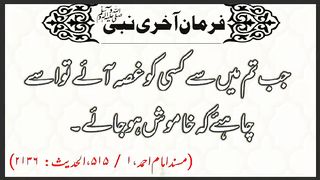 فرمانِ آخری نبی ﷺ
جب تم میں سے کسی کو غصہ آئے تو اسے
چاہئے کہ خاموش ہو جائے۔
(مسند امام احمد، ۱ / ۵۱۵، الحدیث: ۲۱۳۶)